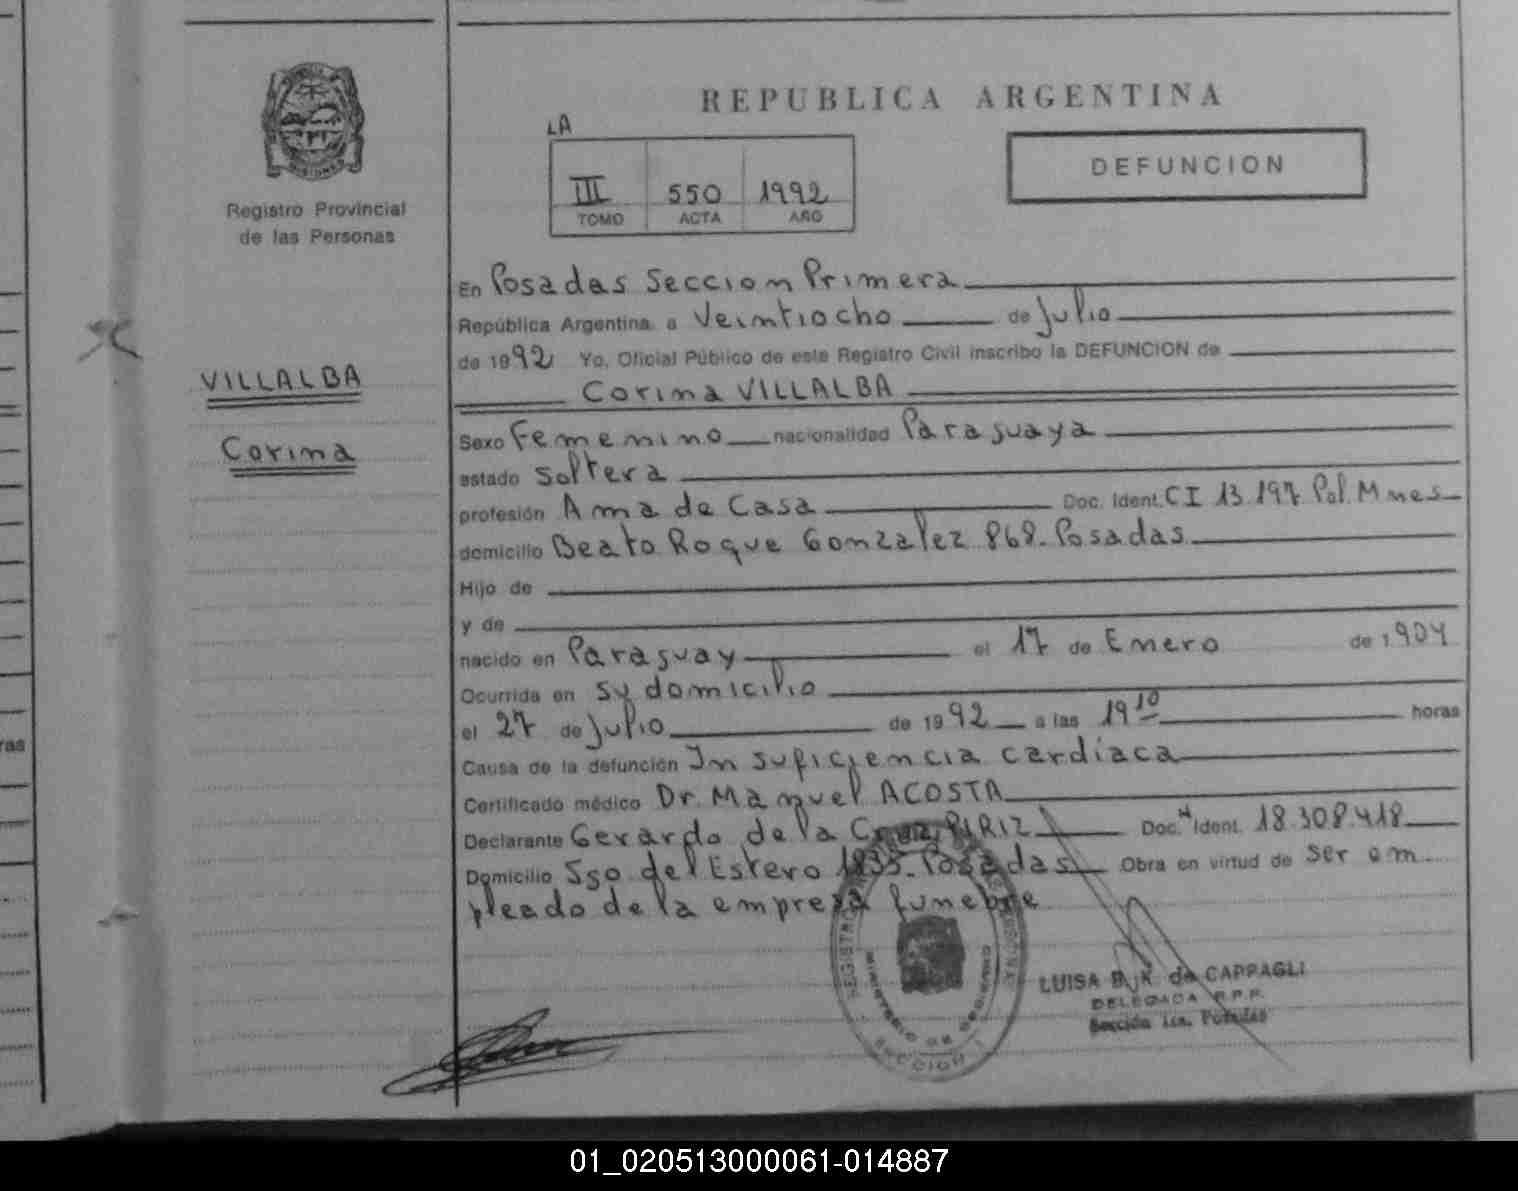 REPUBLICA ARGENTINA
LA
III 550 1992
TOMO ACTA AÑO
DEFUNCION
MISIONES
Registro Provincial
de las Personas
VILLALBA
Corina
En Posadas Seccion Primera
República Argentina, a Veintiocho de Julio
de 1992 Yo, Oficial Público de este Registro Civil inscribo la DEFUNCION de
Corina VILLALBA
Sexo Femenino nacionalidad Paraguaya
estado Soltera
profesión Ama de Casa Doc. Ident. CI 13.197 Pol. Mnes
domicilio Beato Roque Gonzalez 868-Posadas
Hijo de
y de
nacido en Paraguay el 17 de Enero de 1904
Ocurrida en su domicilio
el 27 de Julio de 1992 a las 19 10 horas
Causa de la defunción Insuficiencia cardíaca
Certificado médico Dr. Manuel ACOSTA
Declarante Gerardo de la Cruz PIRIZ Doc. Ident. 18.308.418
Domicilio Sgo. del Estero 1835-Posadas Obra en virtud de ser em-
pleado de la empresa funebre
MINISTERIO DE GOBIERNO
SECCION 1
LUISA B. K. de CAPPAGLI
DELEGADA R.P.P.
Sección 1ra. Posadas
ras
01_020513000061-014887